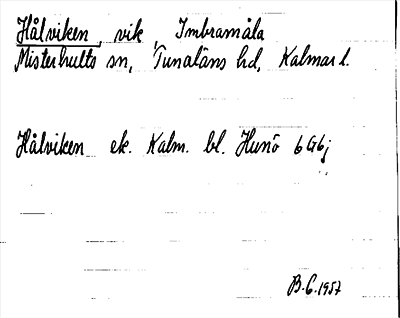 Hålviken, vik, Imbramåla
Misterhults sn, Tunaläns hd, Kalmar l.
Hålviken ek. Kalm. bl. Hunö 6 G6j
B.G. 1957